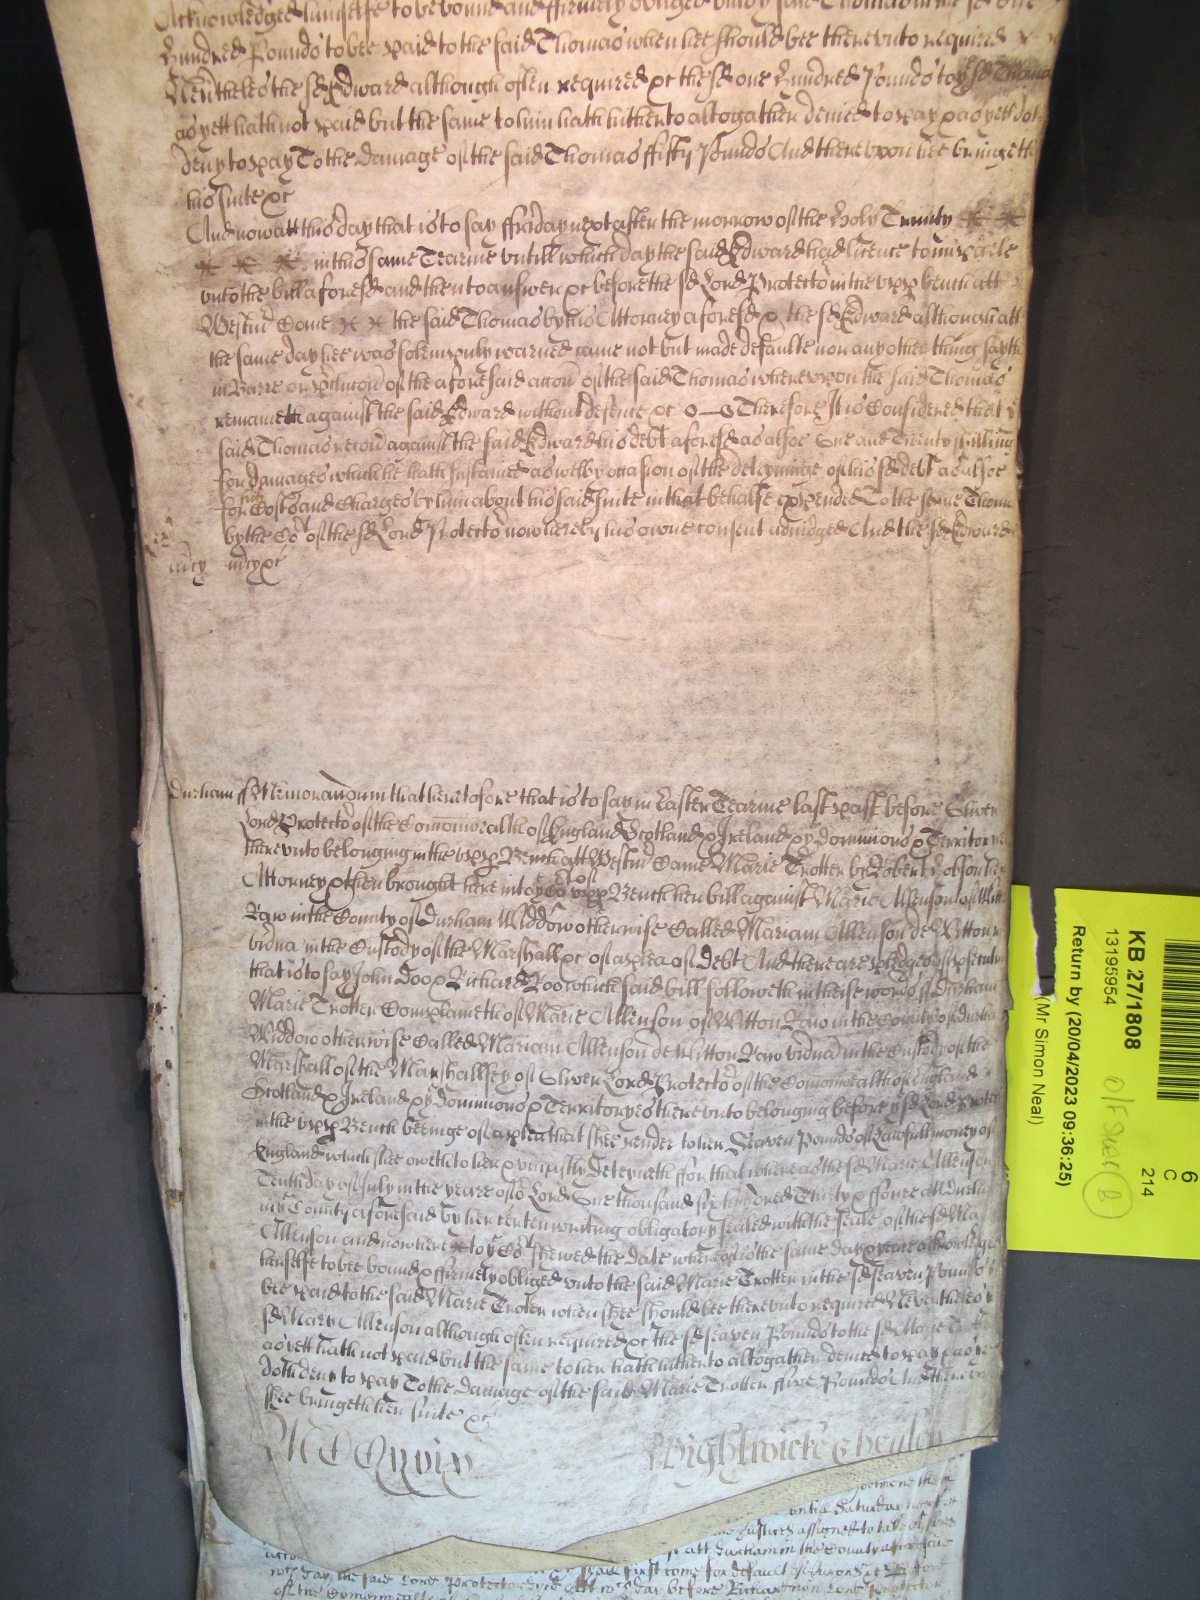 Acknowledged himselfe to be bound and ffirmely obliged unto ye said Thomas in the sd one
hundred Pounds to bee paid to the said Thomas when hee should bee therevnto required
Neu'theles the sd Edward although often required &c the sd one hundred Pounds to ye sd Thomas
as yett hath not paid but the same to him hath hitherto altogather denied to pay & as yett doth
deny to pay To the damage of the said Thomas ffifty Pounds And therevpon hee bringeth
his suite &c
And now att this day that is to say ffriday next after the morrow of the Holy Trinity
in this same Tearme vntill which day the said Edward had licence to imparle
vnto the bill aforesd and then to answer &c before the sd Lord Protector in the vpp bench att
Westmr Came the said Thomas by his Attorney aforesd & the sd Edward although att
the same day hee was solempnly warned came not but made defaulte nor any other thing sayth
in Barre or of the aforesaid accon of the said Thomas wherevpon the said Thomas
remaineth against the said Edward without defence &c Therefore It is Considered that ye
said Thomas recour against the said Edward his debt aforesd as alsoe One and Twenty shillings
for damages which he hath sustained aswell by occasion of the deteyninge of his sd debt as alsoe
for his Costs and Charges by him about his said suite in that behalfe expended To the same Thomas
by the Cort of the sd Lord Protector now here by his owne consent adiudged And the sd Edward
mcy in mcy &c
Durham ss Memorandum that heretofore that is to say in Easter Tearme last past before Oliver
Lord Protector of the Comonwealth of England Scotland & Ireland & ye dominions & Territories
therevnto belonging in the vpp Bench att Westmr Came Marie Trotter by Robert Hobson her
Attorney & then brought here into ye Cort of vpp Bench her bill against Marie Allenson of Witton
Raw in the County of Durham Widdow otherwise Called Mariam Allenson de Witton
vidua in the Custody of the Marshall &c of a plea of Debt And there are pledges of prsecution
that is to say John Doo & Richard Roo which said bill followeth in theise words ss Durham
Marie Trotter Complaineth of Marie Allenson of Witton Raw in the County of Durham
Widdow otherwise Called Mariam Allenson de Witton Raw vidua in the Custody of the
Marshall of the Marshallsey of Oliver Lord Protector of the Comonwealth of England
Scotland & Ireland & ye dominions & Territoryes therevnto belonging before ye sd Lord Protector
in the vpp Bench beeinge of a plea that shee render to her Seaven Pounds of Lawfull money of
England which shee oweth to her & vniustly deteyneth ffor that whereas the sd Marie Allenson
Tenth day of July in the yeare of or Lord One thousand six hundred Thirty & ffoure att Durham
in ye County aforesaid by her certen writing obligatory sealed with the seale of the sd Marie
Allenson and now here to ye Cort shewed the date whereof is the same day & yeare acknowledged
herselfe to bee bound & ffirmely obliged vnto the said Marie Trotter in the sd seaven Pounds to
bee paid to the said Marie Troter when shee should bee therevnto required Neuertheles ye
sd Mary Allenson although often required &c the sd seaven Pounds to the sd Marie
as yett hath not paid but the same to her hath hitherto altogather denied to pay & as yet
doth deny to pay To the damage of the said Marie Trotter ffive Pounds And therevpon
shee bringeth her suite &c
MCCxviij Wightwicke
vntill Saturday next
Justices assigned to take
att Durham in the County aforesaid
shall first come for default of Jurors &c
day the said Lord Protector day before Richard now Lord Protector
of the Comonwealth
6
C
214
KB 27/1808
13195954
O/F Shelf B
Return by (20/04/2023 09:36:25)
(Mr Simon Neal)